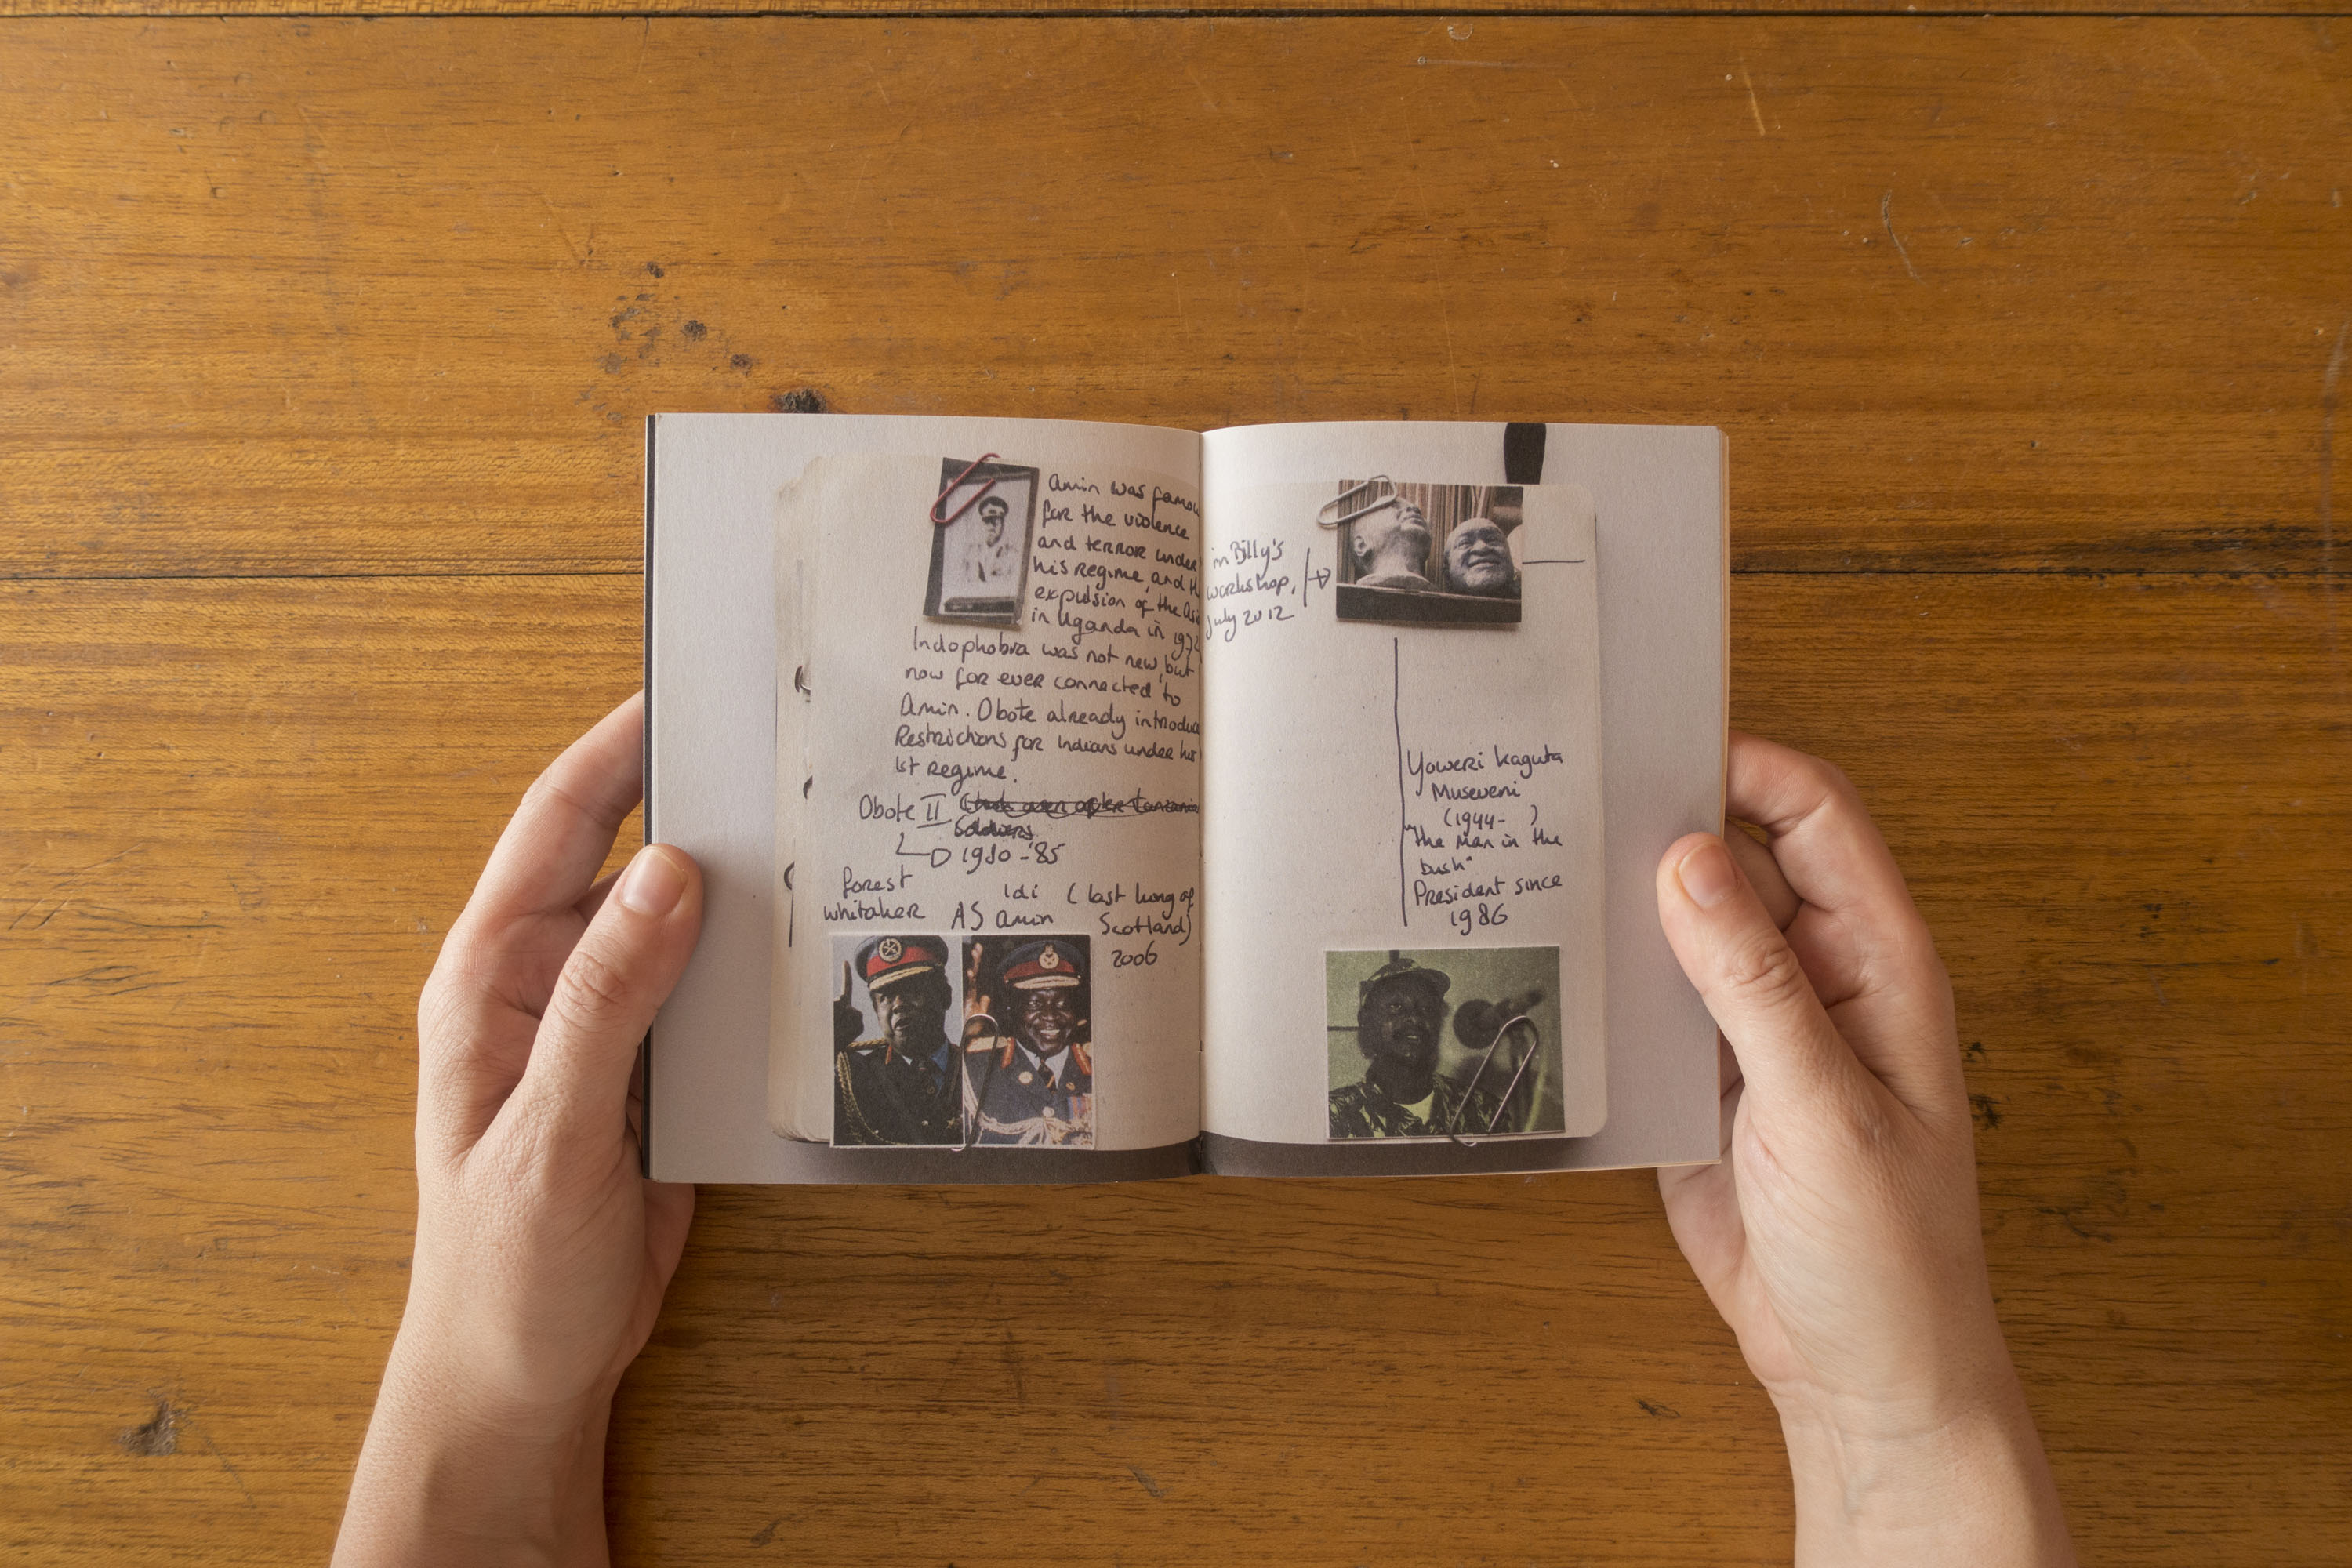 Amin was famou
for the violence
and terror under
his regime, and th
expulsion of the Asi
in Uganda in 197
Indophobia was not new, but
now for ever connected to
Amin. Obote already introduc
Restrictions for Indians under his
1st regime.
Obote II
Soldiers
1980 - '85
forest
whitaker
AS
idi
amin
(last king of
Scotland)
2006
in Billy's
workshop,
July 2012
Yoweri Kaguta
Museveni
(1944- )
"the man in the
bush"
President since
1986